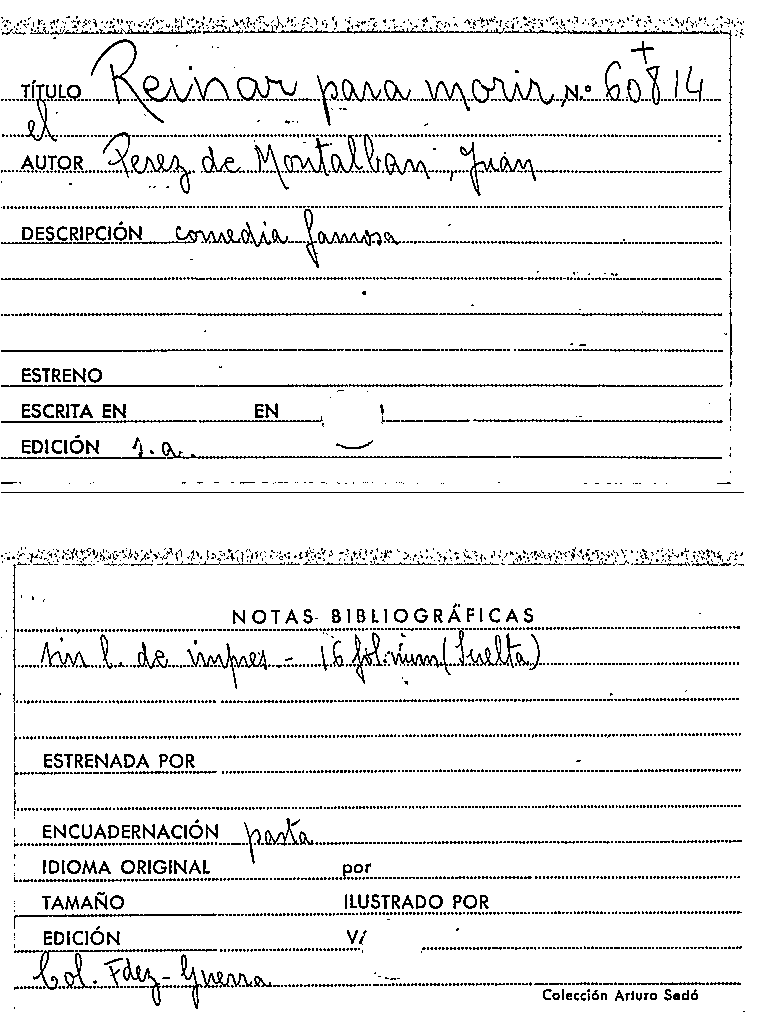 TÍTULO Reinar para morir, N.º 60814
el
AUTOR Perez de Montalban, Juan
DESCRIPCIÓN comedia famosa
ESTRENO
ESCRITA EN EN
EDICIÓN s.a.
NOTAS BIBLIOGRÁFICAS
sin l. de impres - 16 fol. num (Suelta)
ESTRENADA POR
ENCUADERNACIÓN pasta
IDIOMA ORIGINAL por
TAMAÑO ILUSTRADO POR
EDICIÓN V/
Col. Fdez-Guerra
Colección Arturo Sedó